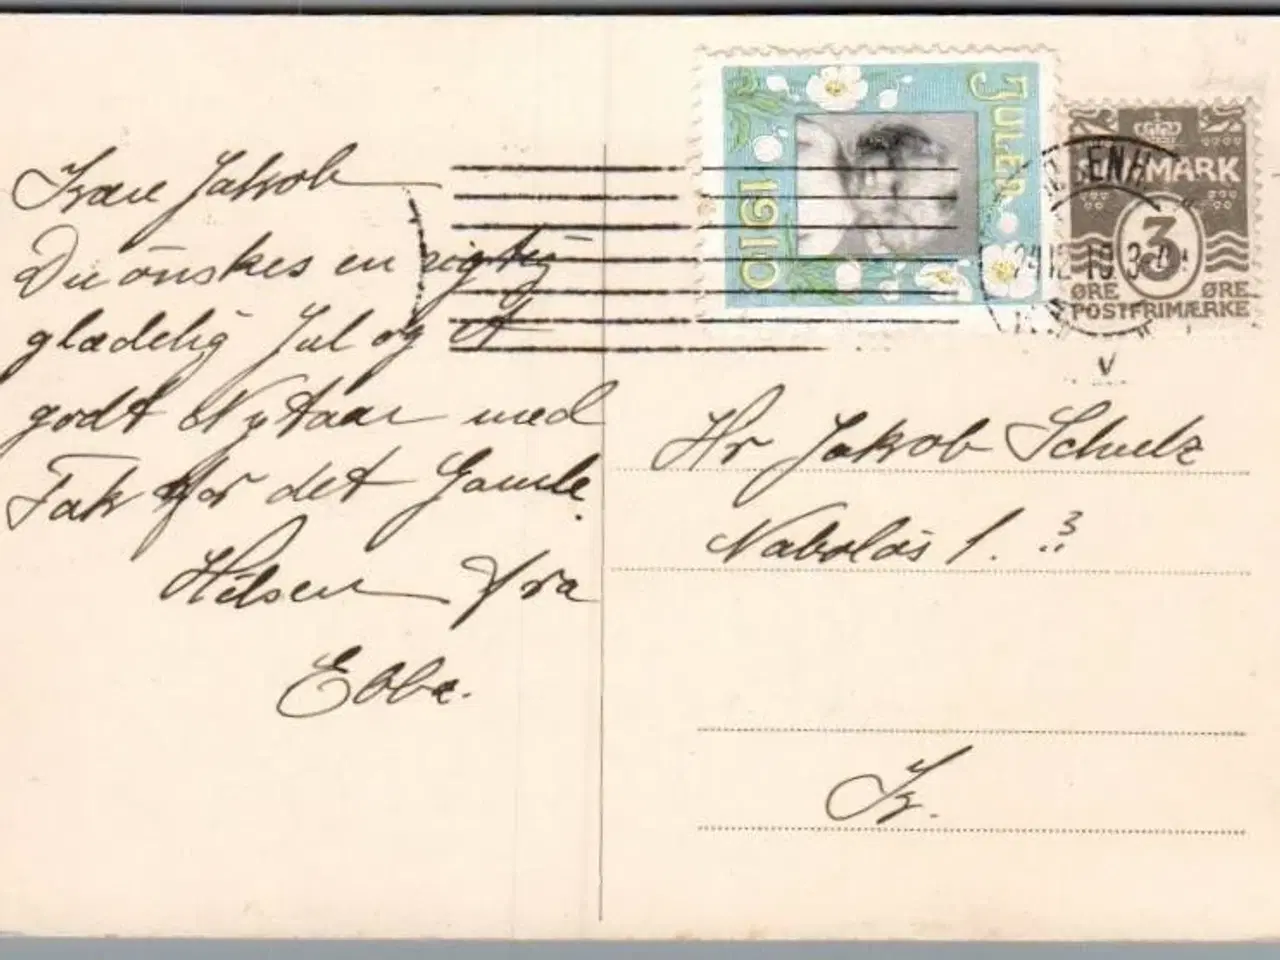 Kære Jakob
Du önskes en rigtig
glædelig Jul og et
godt Nytaar med
Tak for det Gamle.
Hilsen fra
Ebba.
JULEN
1910
DANMARK
3
ØRE ØRE
POSTFRIMÆRKE
24.12.10.3-4
Hr Jakob Schulz
Naboløs 1. 3
K.